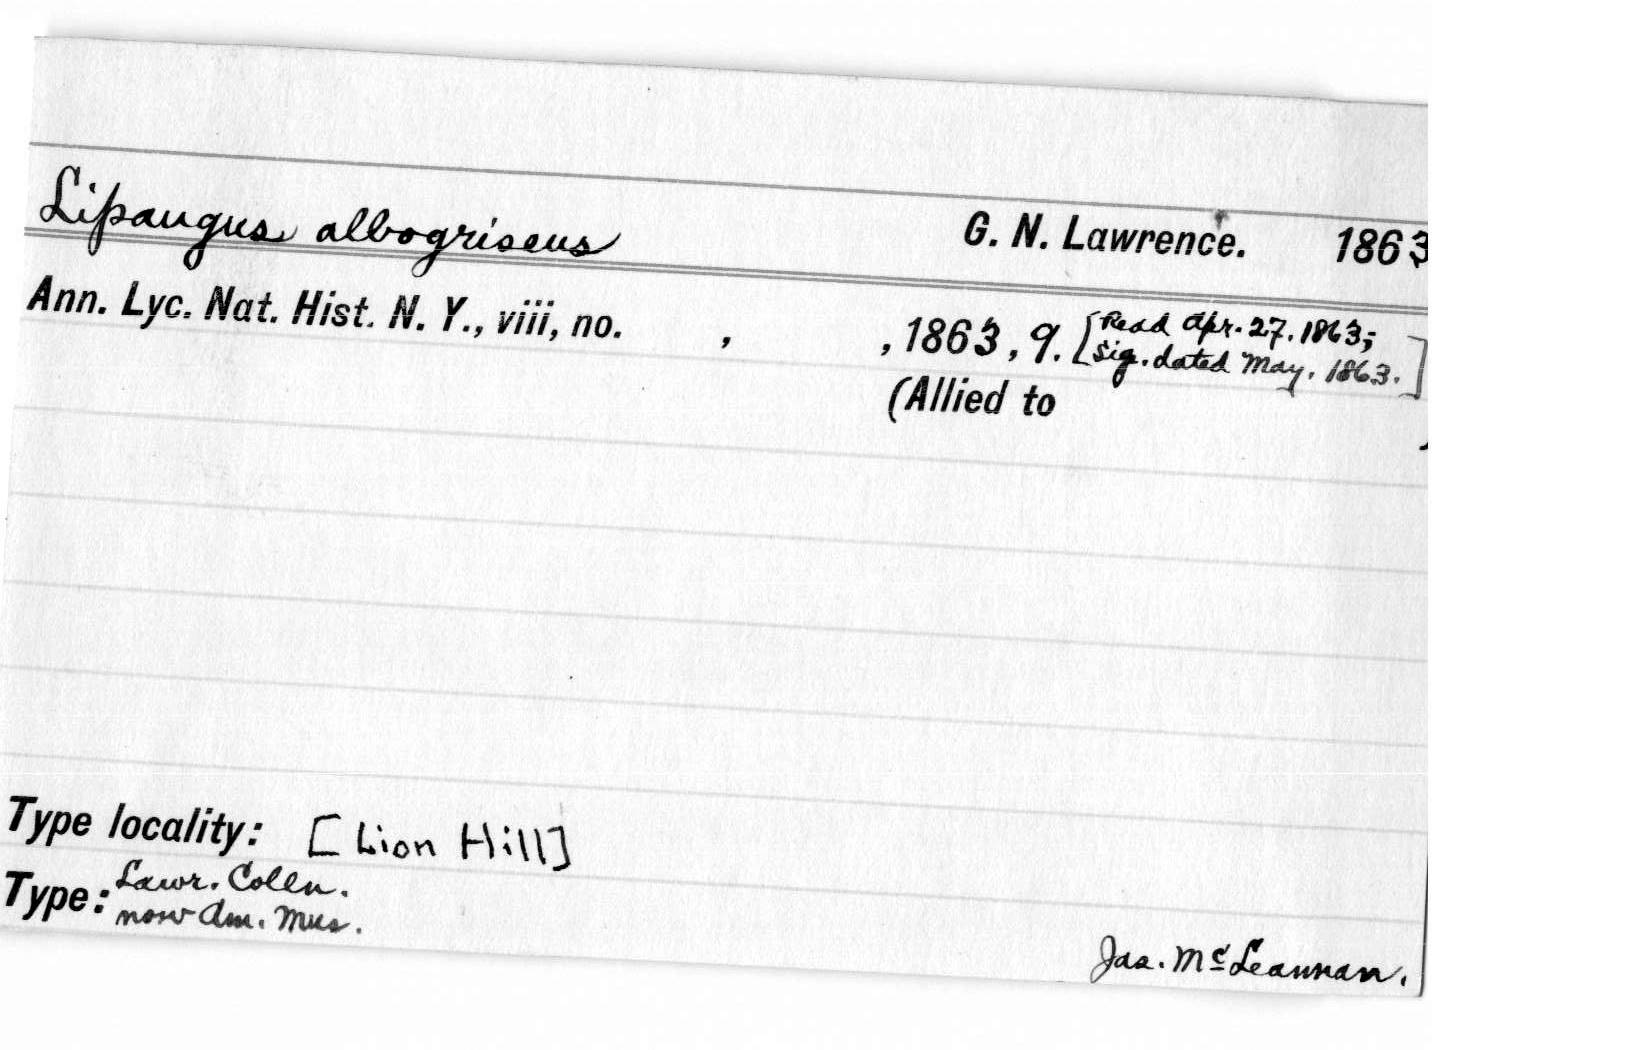 Lipaugus albogriseus G. N. Lawrence. 1863
Ann. Lyc. Nat. Hist. N. Y., viii, no. , , 1863, 9. [Read Apr. 27. 1863;
Sig. dated May. 1863.]
(Allied to )
Type locality: [Lion Hill]
Type: Lawr. Colln.
now Am. Mus.
Jas. McLeannan.